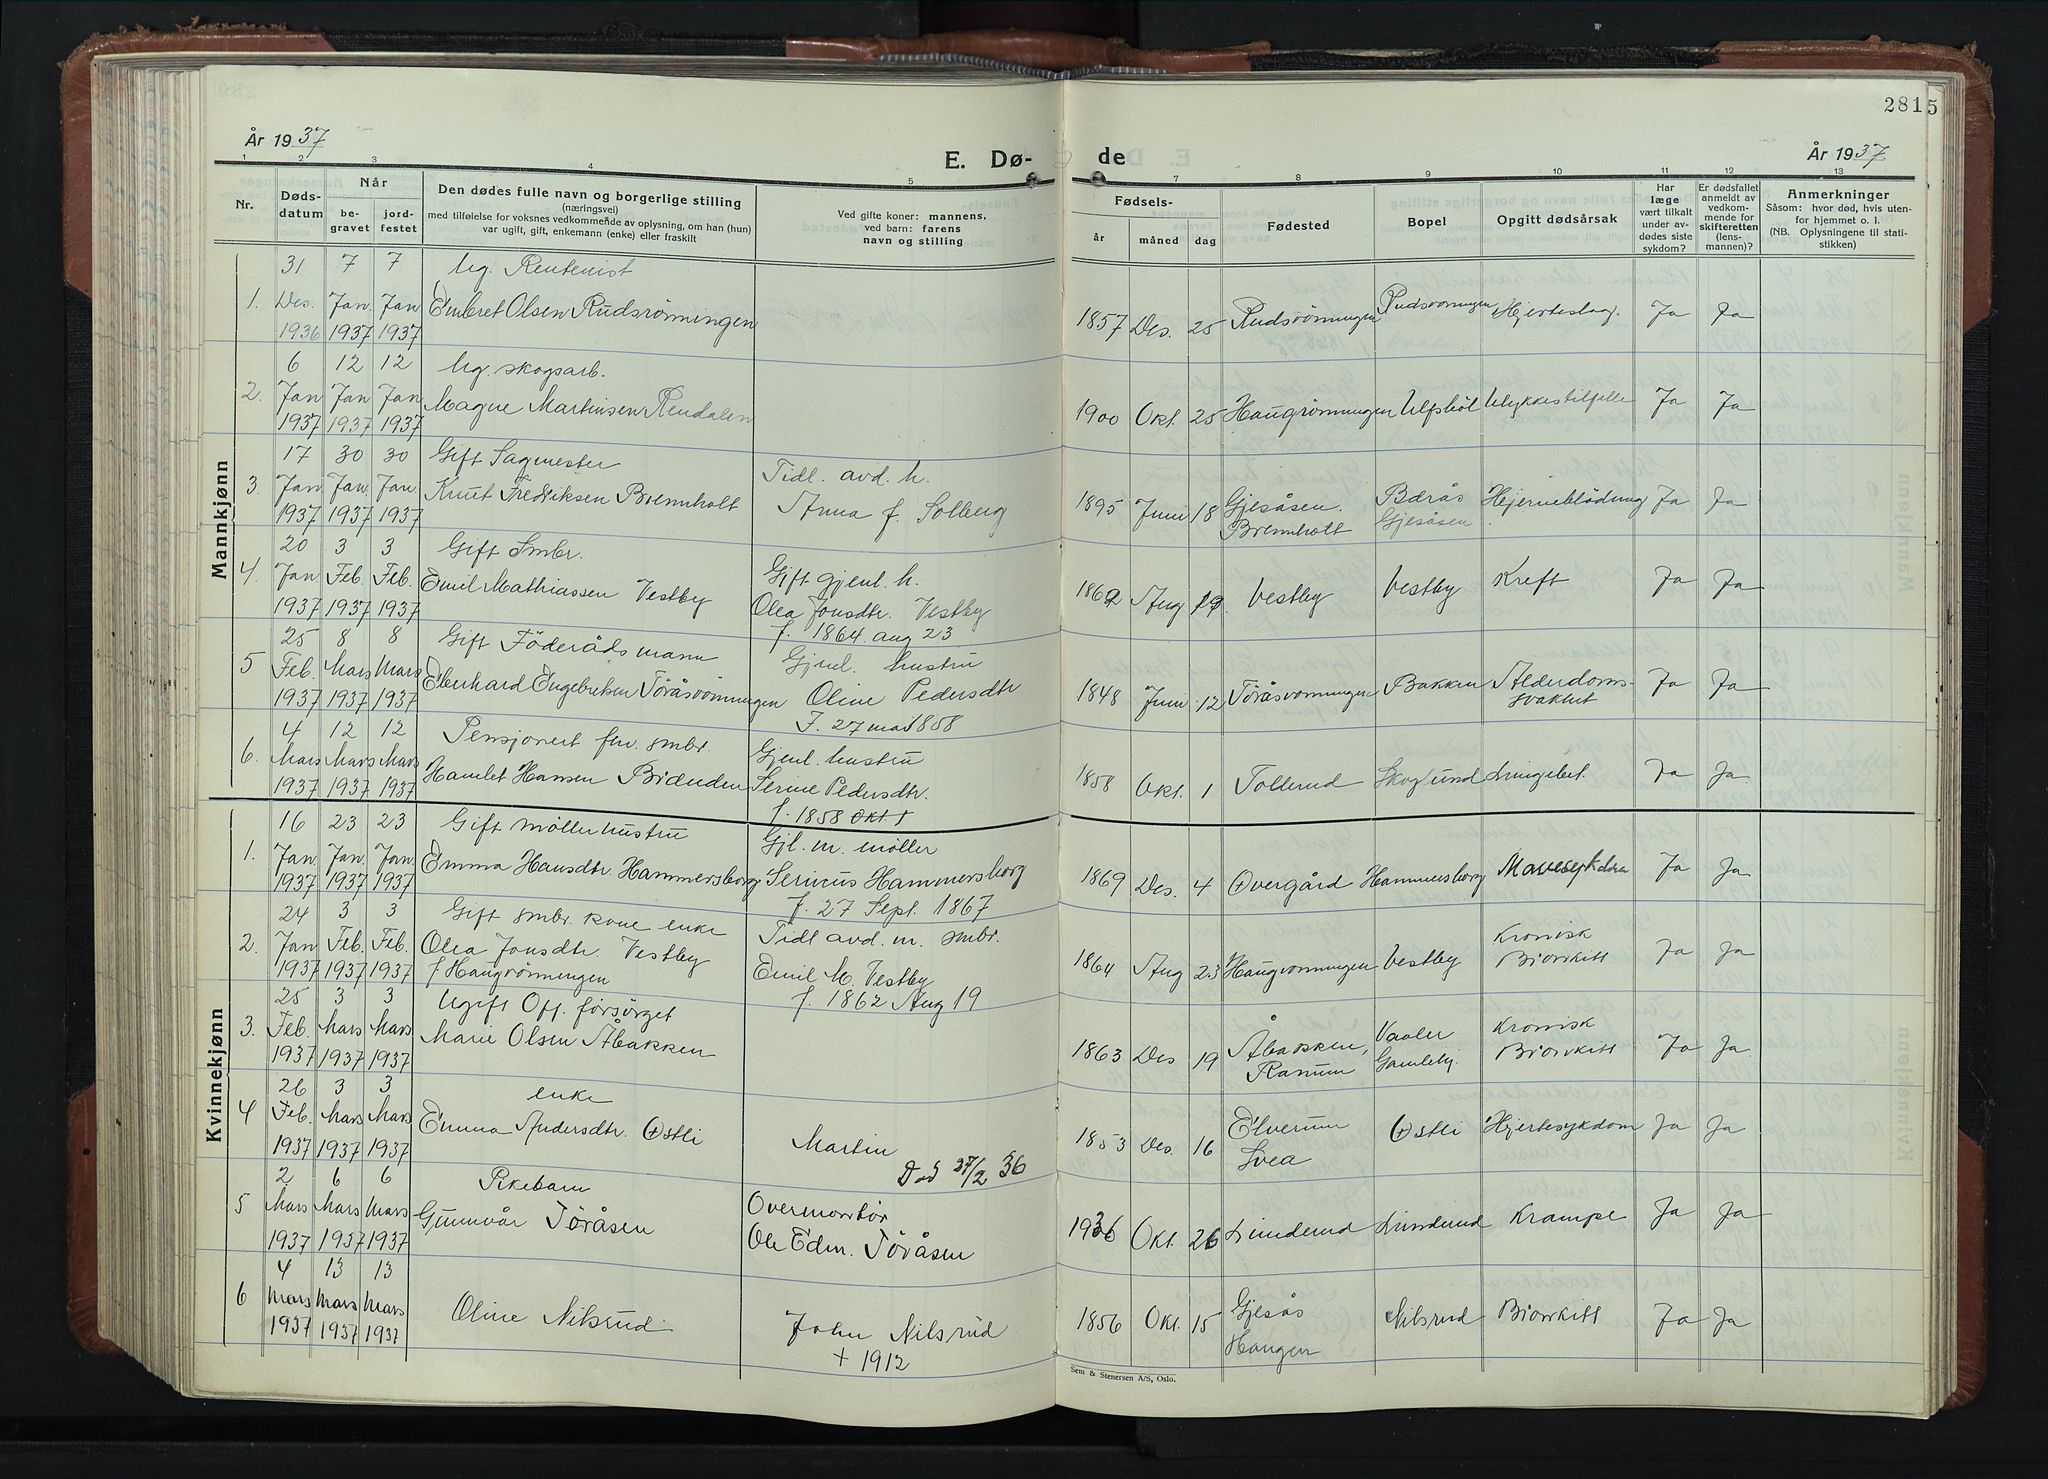 2815
År 1937
E. Dø- de
År 1937
1 2 3 4 5 7 8 9 10 11 12 13
Nr. Dødsdatum Når begravet jordfestet
Den dødes fulle navn og borgerlige stilling
(næringsvei)
med tilføielse for voksnes vedkommende av oplysning, om han (hun)
var ugift, gift, enkemann (enke) eller fraskilt
Ved gifte koner: mannens,
ved barn: farens
navn og stilling
Fødsels- år måned dag
Fødested
Bopel
Opgitt dødsårsak
Har læge vært tilkalt under avdødes siste sykdom?
Er dødsfallet anmeldt av vedkommende for skifteretten (lensmannen)?
Anmerkninger
Såsom: hvor død, hvis utenfor hjemmet o. l.
(NB. Oplysningene til statistikken)
Mannkjønn
31 7 7 Ug. Rentenist
1. Des. Jan Jan Embret Olsen Rudsrönningen 1857 Des. 25 Rudsrönningen Rudsrönningen Hjerteslag. Ja Ja
1936 1937 1937
6 12 12 Ug. skogsarb.
2. Jan Jan Jan Magne Martinsen Rendalen 1900 Okt. 25 Haugrönningen Ulfsböl Ulykkestilfelle Ja Ja
1937 1937 1937
17 30 30 Gift Sagmester Tidl. avd. h.
3. Jan Jan Jan. Knut Fredriksen Brennholt Anna f. Solberg 1895 Juni 18 Gjesåsen. Brennholt Bdrås Gjesåsen Hjerneblödning Ja Ja
1937 1937 1937
20 3 3 Gift Smbr. Gift gjenl. h.
4. Jan Feb. Feb. Emil Mathiassen Vestby Olea Jonsdtr. Vestby 1862 Aug 19 Vestby Vestby Kreft Ja Ja
1937 1937 1937 f. 1864. aug 23
25 8 8 Gift Föderådsmann Gjenl. hustru
5 Feb. Mars Mars Eberhard Engebretsen Töråsrönningen Oline Pedersdtr 1848 Juni 12 Töråsrönningen Bakken Alderdomssvakhet Ja Ja
1937 1937 1937 f. 27 mai 1858
4 12 12 Pensjonert fhv. smbr. Gjenl. hustru
6. Mars Mars Mars Hamlet Hansen Serine Pedersdtr. 1858 Okt. 1 Tollerud Skoglund Lungebet. Ja Ja
1937 1937 1937 f. 1858 Okt. 1
Kvinnekjønn
16 23 23 Gift möllerhustru Gjl. m. möller
1. Jan Jan. Jan. Emma Hansdtr. Hammersborg Serinus Hammersborg 1869 Des. 4 Overgård Hammersborg Mavesykdom Ja Ja
1937 1937 1937 f. 27 Sept. 1867
24 3 3 Gift smbr. kone enke Tidl avd. m. smbr.
2. Jan Feb. Feb. Olea Jonsdtr. Vestby Emil M. Vestby 1864 Aug 23 Haugrönningen Vestby Kronisk Bronkitt Ja Ja
1937 1937 1937 f Haugrönningen f. 1862 Aug 19
25 3 3 Ugift Off. forsörget
3. Feb. Mars Mars Marie Olsen Åbakken 1863 Des 19 Åbakken, Ranum Vaaler Gamlehj. Kronisk Bronkitt Ja Ja
1937 1937 1937
26 3 3 enke
4 Feb. Mars Mars Emma Andersdtr. Østli Martin 1853 Des. 16 Elverum Svea Østli Hjertesykdom Ja Ja
1937 1937 1937 Död 27/2 36
2 6 6 Pikebarn
5 Mars Mars Mars Gunnvår Töråsen Overmontör 1936 Okt. 26 Linderud Linderud Krampe Ja Ja
1937 1937 1937 Ole Edm. Töråsen
4 13 13
6 Mars Mars Mars Oline Nilsrud John Nilsrud 1856 Okt. 15 Gjesås Haugen Nilsrud Bronkitt Ja Ja
1937 1937 1937 + 1912
Sem & Stenersen A/S, Oslo.